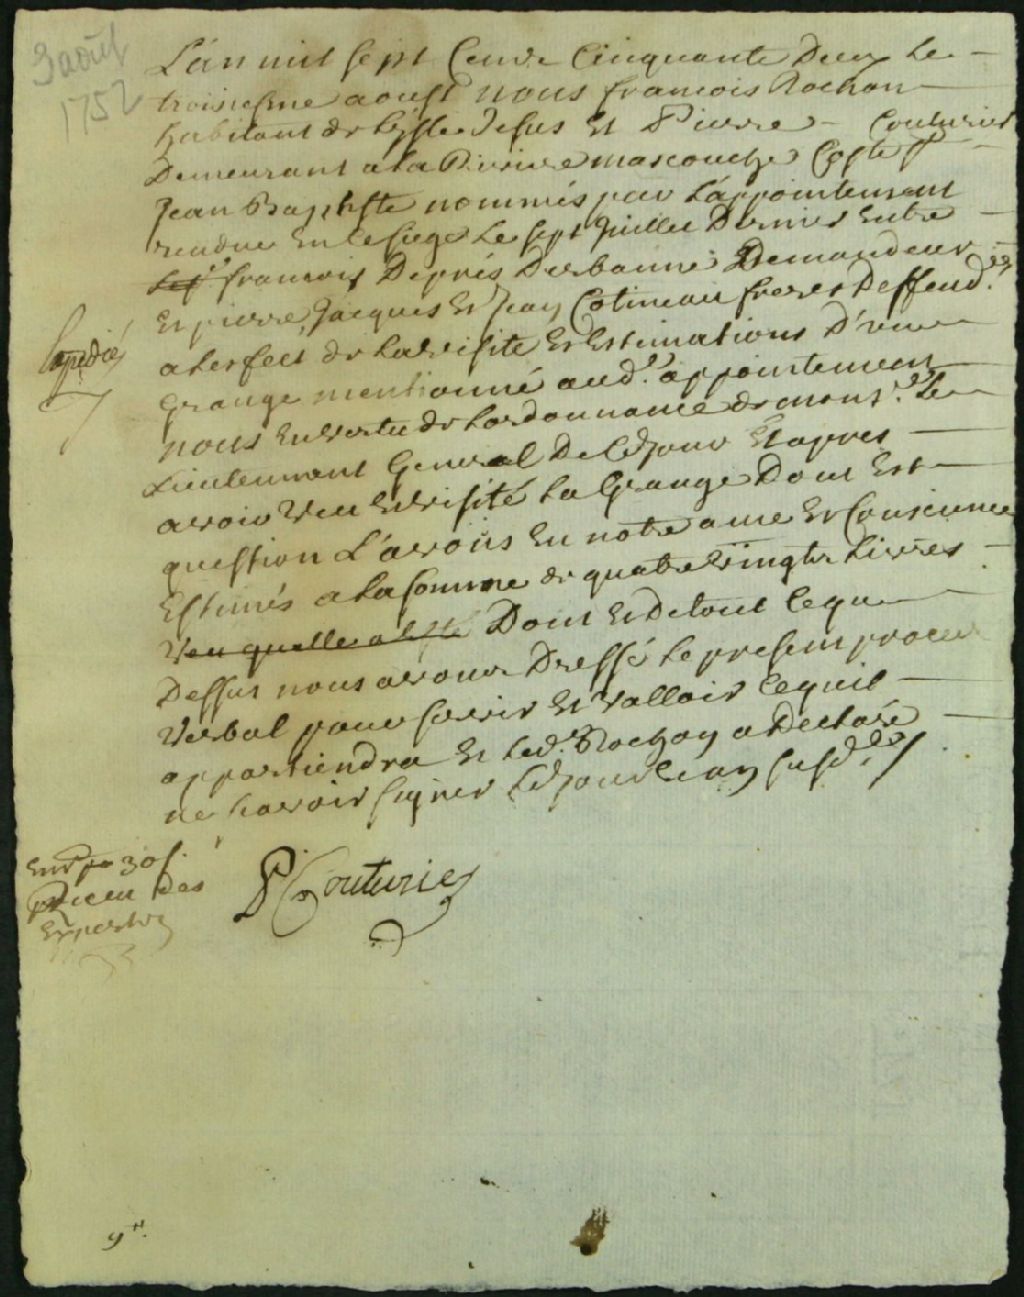 3 août
1752
L'an mil sept Cent Cinquante Deux le
troisiesme aoust nous francois Rochon
habitant de l'isle Jesus Et Pierre Couturier
Demeurant a la Riviere mascouche Coste St
Jean Baptiste nommés par l'appointement
rendue En le siege le sept Juillet Dernier Entre
francois Deprés Derbanne Demandeur
Et pierre, Jacques Et Jean Cotineau freres Deffendrs
a lerfect de la visite Et Estimations D'une
Grange mentionné aud.t appointement
nous En vertu de lordonnance de monsr. le
Lieutenant General De Ce Jour Et apres
avoir Veu Et visité la Grange Dont Est
question L'avons En notre ame Et Consience
Estimés a la somme de quatre vingts Livres
Veu quelle a Dont Et De tout Ce que
Dessus nous avons Dressé le present proces
Verbal pour servir Et valloir Ce quil
appartiendra Et led. Rochon a Declaré
ne savoir signer Led Jour Et an susd.
Expedié
P Couturier
30 s.
des
Experts
9tt.